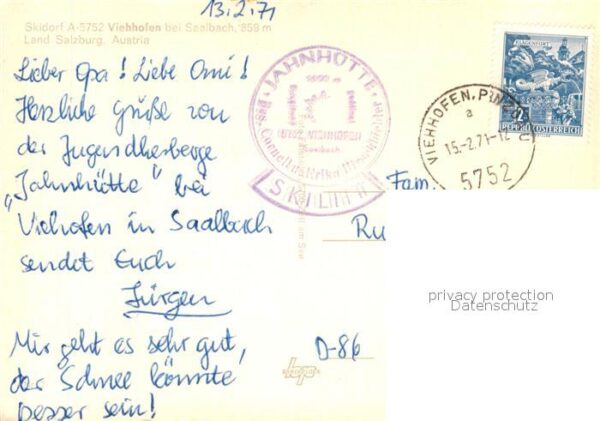 13.2.71
Skidorf A-5752 Viehhofen bei Saalbach, 859 m
Land Salzburg, Austria
Lieber Opa! Liebe Omi!
Herzliche Grüße von
der Jugendherberge
"Jahnhütte" bei
Viehofen in Saalbach
sendet Euch
Jürgen
Mir geht es sehr gut,
der Schnee könnte
besser sein!
JAHNHÜTTE
5752 VIEHHOFEN
Saalbach
Bes. Cornel u. Erika
SKILIFT
KLAGENFURT
REPUBLIK ÖSTERREICH
VIEHHOFEN, PINZGAU
a
15.-2.71-12
5752
Fam.
Ru
D-86
privacy protection
Datenschutz